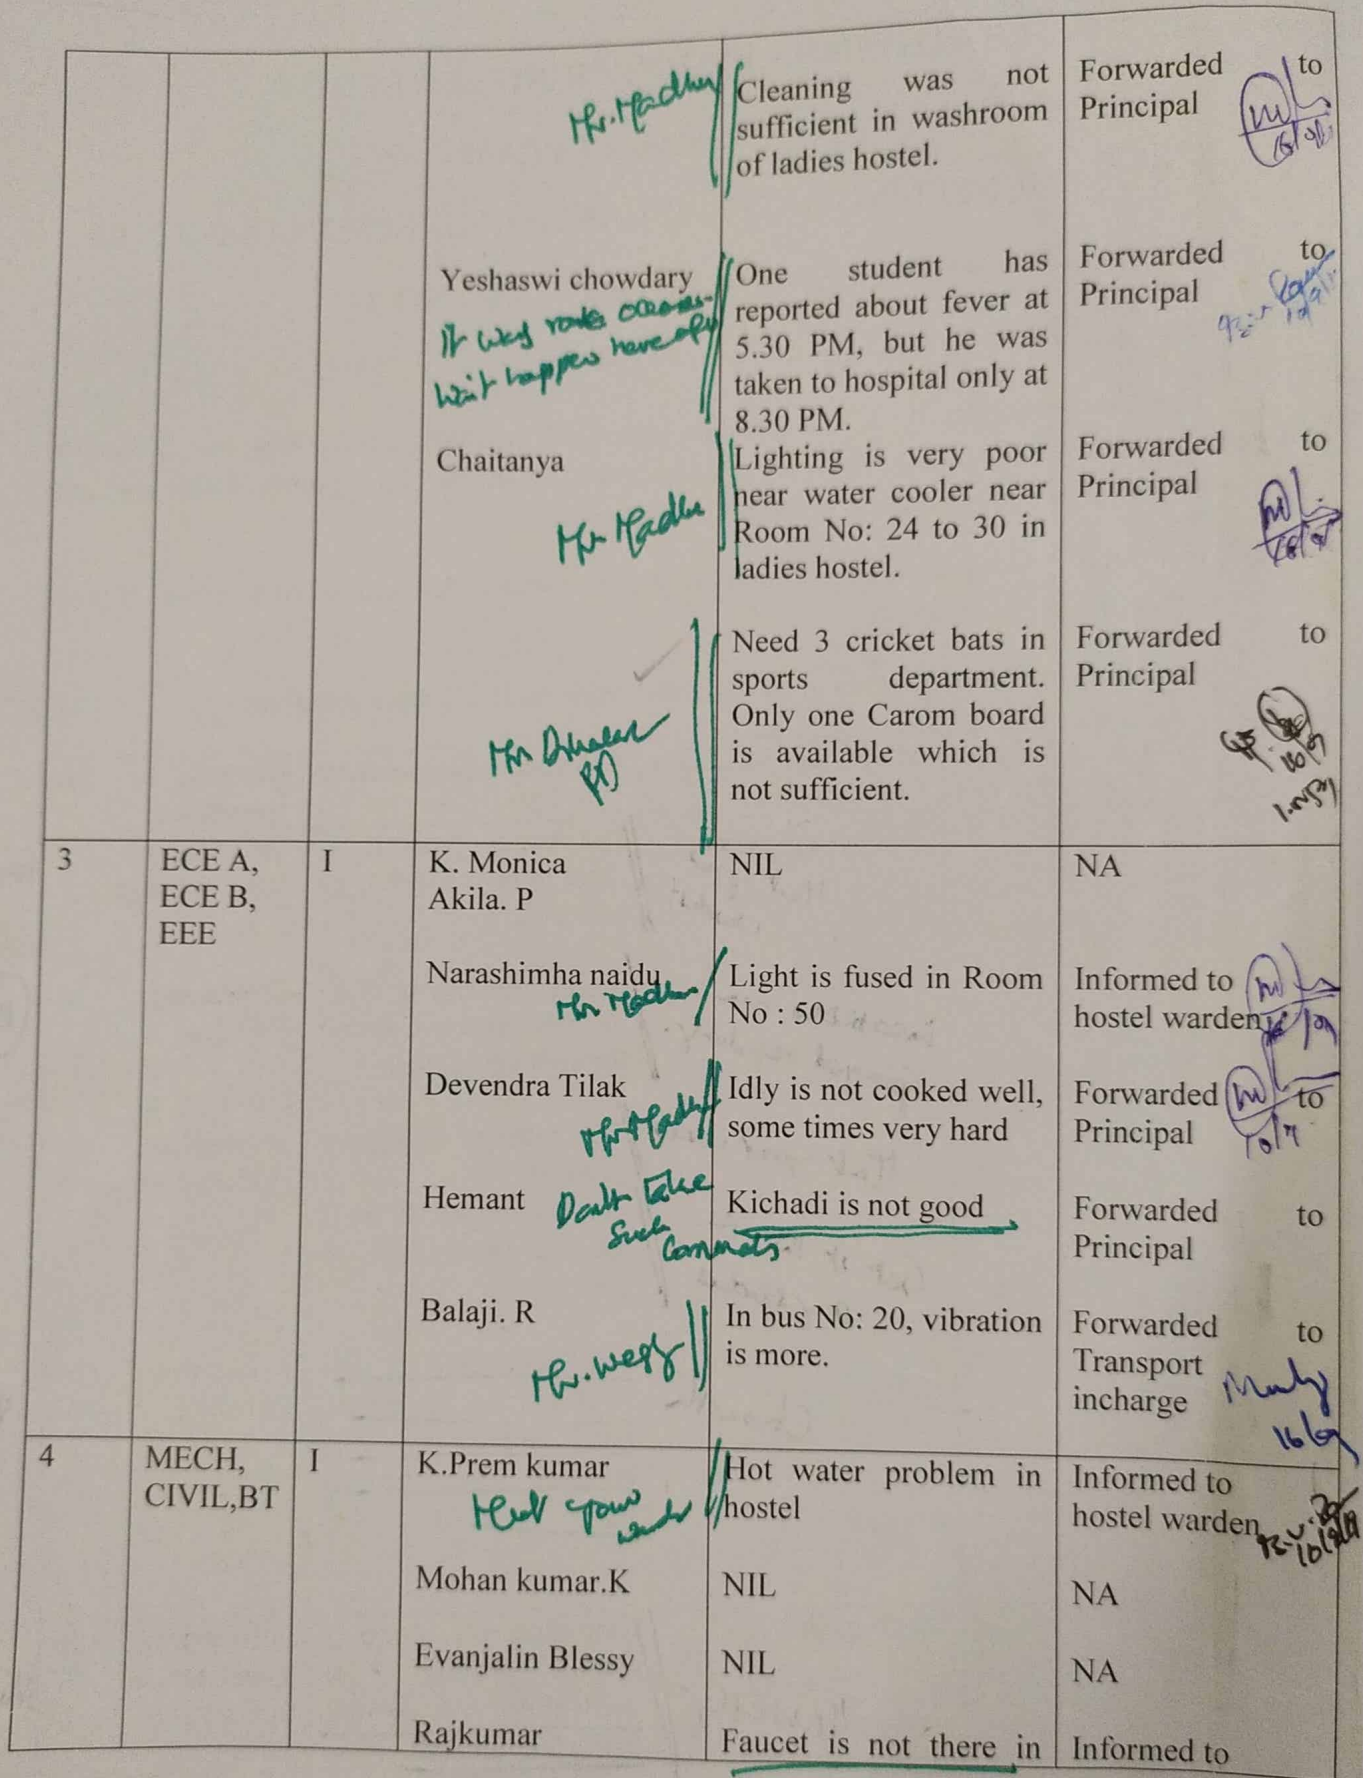 Mr. Madhu
Cleaning was not
sufficient in washroom
of ladies hostel.
Forwarded to
Principal
Yeshaswi chowdary
It was
happen
One student has
reported about fever at
5.30 PM, but he was
taken to hospital only at
8.30 PM.
Forwarded to
Principal
Chaitanya
Mr Madhu
Lighting is very poor
near water cooler near
Room No: 24 to 30 in
ladies hostel.
Forwarded to
Principal
Mr
PD
Need 3 cricket bats in
sports department.
Only one Carom board
is available which is
not sufficient.
Forwarded to
Principal
3
ECE A,
ECE B,
EEE
I
K. Monica
Akila. P
NIL
NA
Narashimha naidu
Mr Madhu
Light is fused in Room
No : 50
Informed to
hostel warden
Devendra Tilak
Mr Madhu
Idly is not cooked well,
some times very hard
Forwarded to
Principal
Hemant
Don't take
such
comments
Kichadi is not good
Forwarded to
Principal
Balaji. R
Mr.
In bus No: 20, vibration
is more.
Forwarded to
Transport
incharge
4
MECH,
CIVIL,BT
I
K.Prem kumar
your
Hot water problem in
hostel
Informed to
hostel warden
Mohan kumar.K
NIL
NA
Evanjalin Blessy
NIL
NA
Rajkumar
Faucet is not there in
Informed to